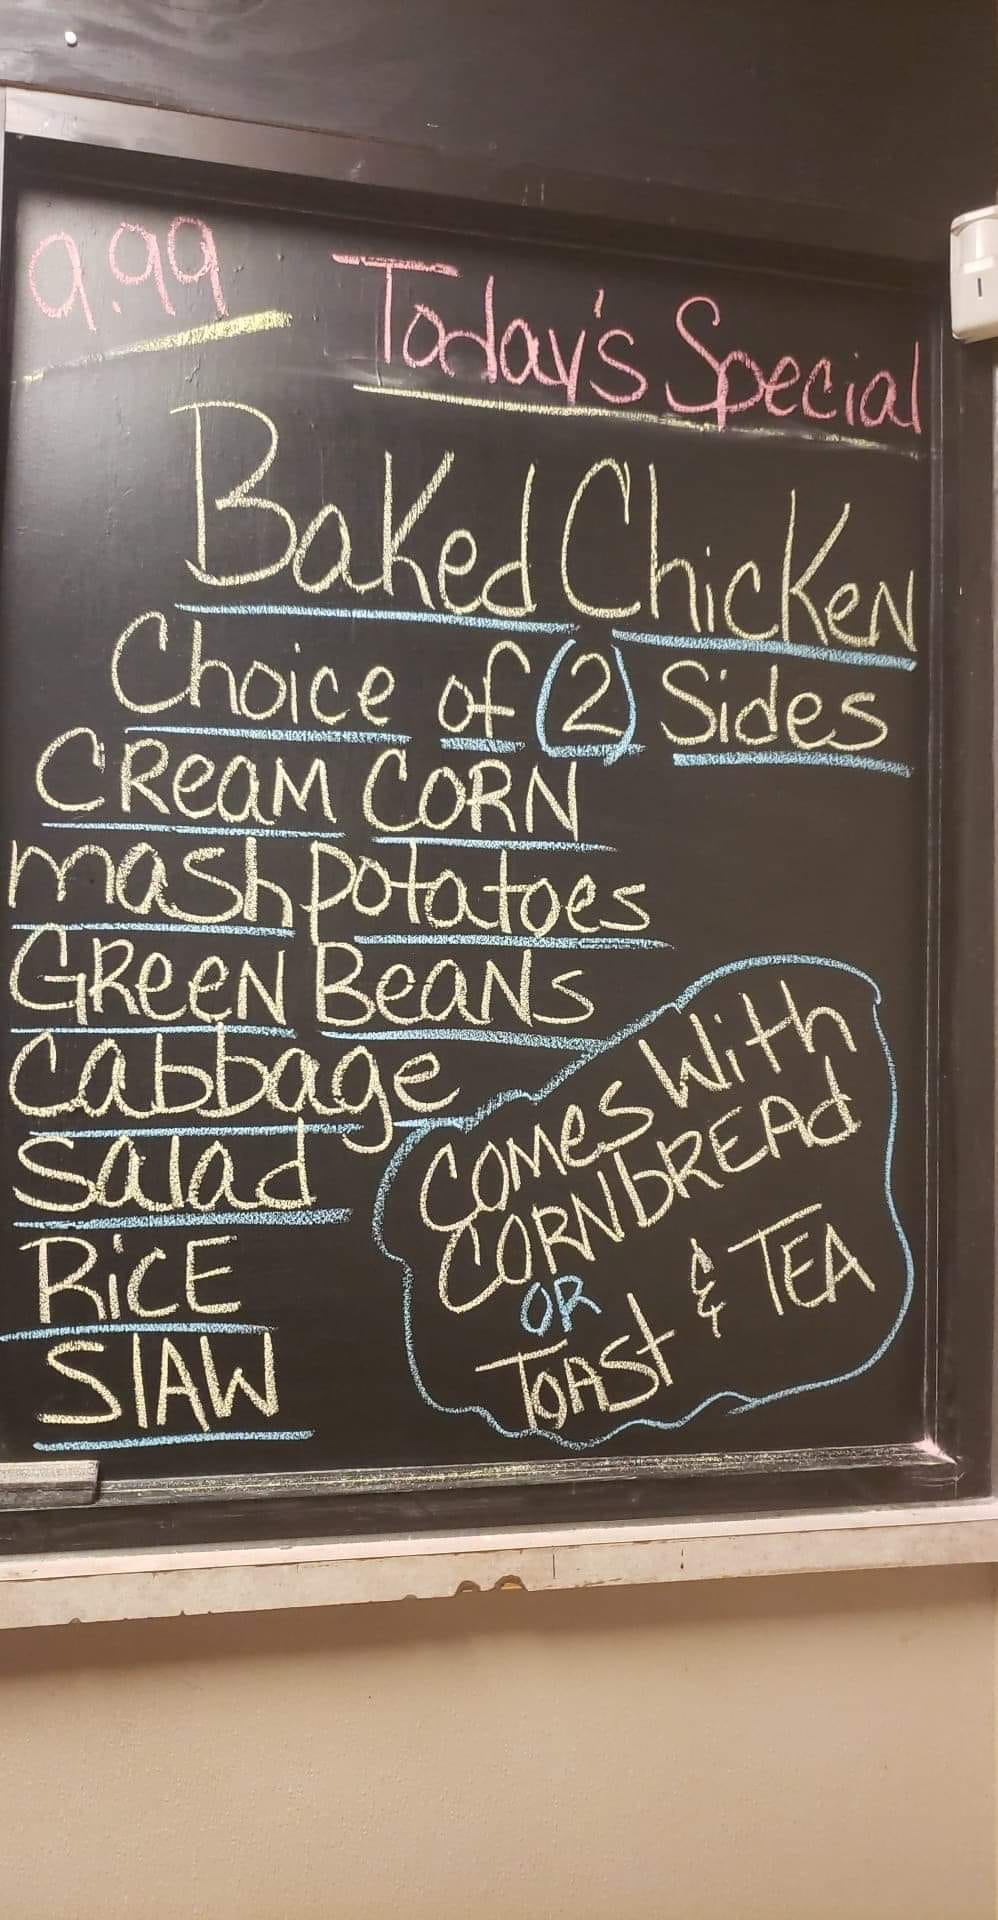 9.99 Today's Special
Baked Chicken
Choice of (2) Sides
Cream Corn
mash potatoes
Green Beans
Cabbage
Salad
Rice
Slaw
Comes With
Cornbread
or
Toast & Tea